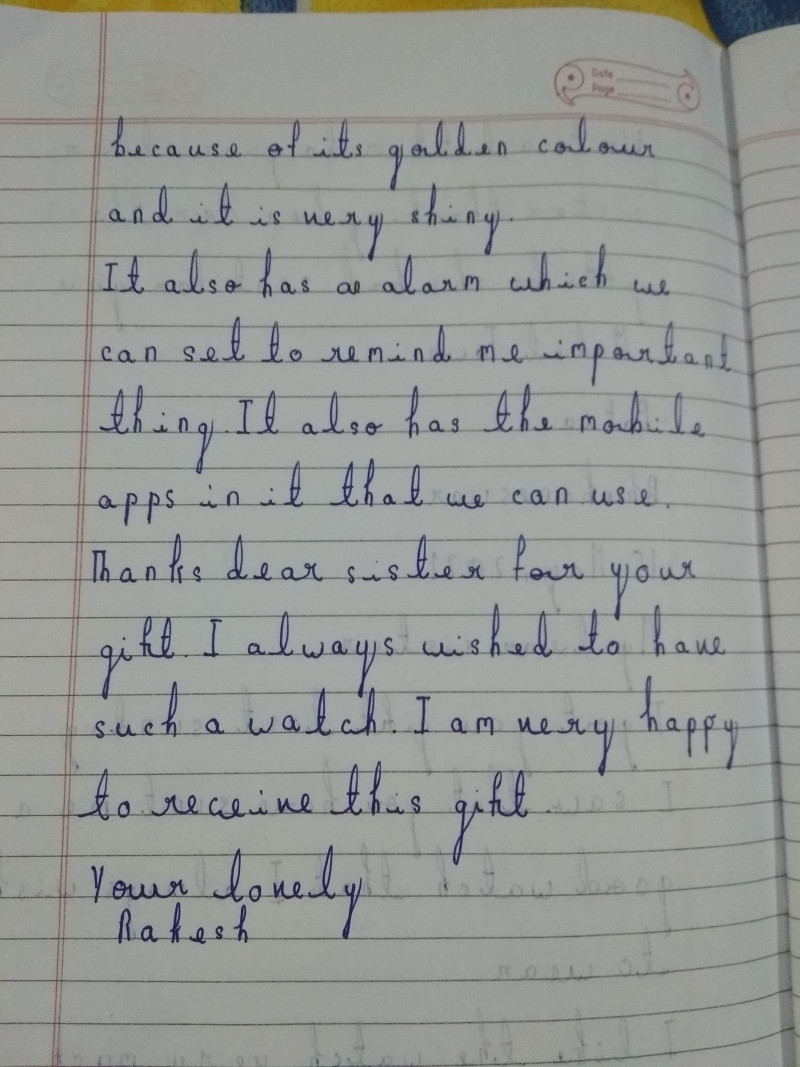 Date
Page
because of its golden colour
and it is very shiny.
It also has a alarm which we
can set to remind me important
thing. It also has the mobile
apps in it that we can use.
Thanks dear sister for your
gift. I always wished to have
such a watch. I am very happy
to receive this gift.
Your lovely
Rakesh